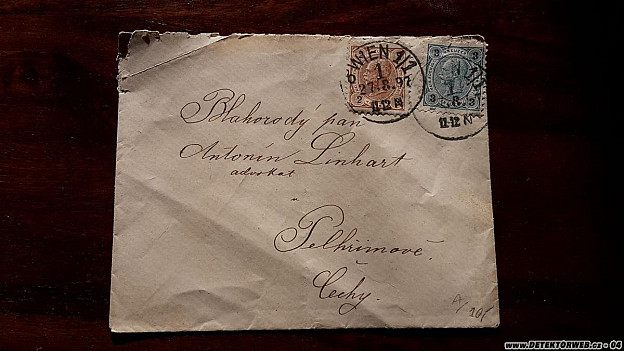 WIEN 1/1
1
27.8.97
11-12 N
2
3 3
3 3
1
11-12 N
Blahorodý pan
Antonín Linhart
advokat
"
Pelhřimově.
Čechy.
www.DETEKTORWEB.cz - 04